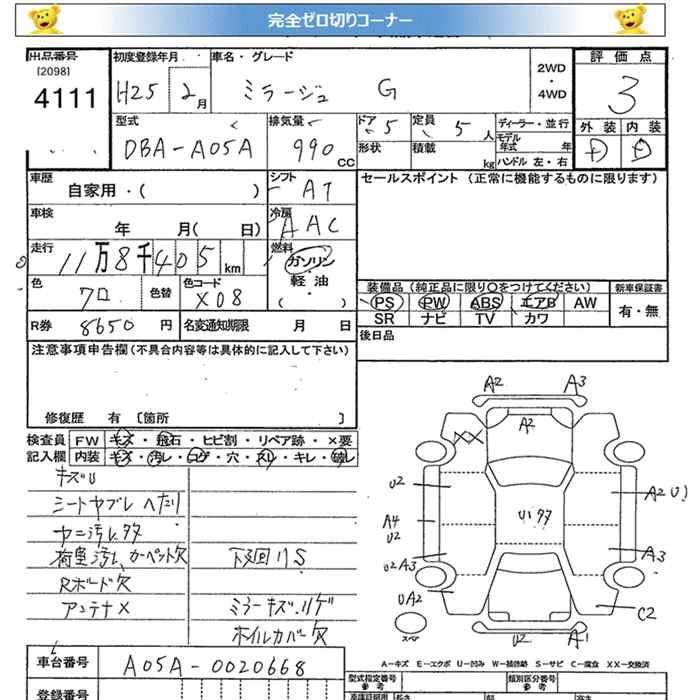 完全ゼロ切りコーナー
出品番号 初度登録年月 車名・グレード 2WD・4WD 評価点
[2098]
4111 H25 2月 ミラージュ G 3
型式 排気量 ドア 5 定員 5人 ディーラー・並行 外装 内装
DBA-A05A 990cc 形状 積載 kg モデル年式 年 D D
ハンドル 左・右
車歴 シフト セールスポイント (正常に機能するものに限ります)
自家用・( ) AT
車検 冷房
年 月( 日) AAC
走行 燃料
11万8千405km ガソリン・軽油・( )
色 色替 色コード 装備品 (純正品に限り○をつけてください) 新車保証書
クロ X08 PS PW ABS エアB AW 有・無
SR ナビ TV カワ
R券 8650円 名変通知期限 月 日 後日品
注意事項申告欄 (不具合内容等は具体的に記入して下さい)
修復歴 有 [箇所 ]
検査員 FW キズ・飛石・ヒビ割・リペア跡・×要
記入欄 内装 キズ・汚レ・コゲ・穴・スレ・キレ・破レ
キズU
シートヤブレ ヘタリ
ヤニ汚レ多
荷室汚レ カーペット欠 下廻りS
Rボード欠
アンテナX ミラーキズ.ハゲ
ホイルカバー欠
A2 A3
A2
XX
U2 A2 U1
A4 U1多
U2
U2 A3 A3
UA2
C2
スペア U2 A1
A-キズ E-エクボ U-凹み W-補修跡 S-サビ C-腐食 XX-交換済
車台番号 A05A-0020668 型式指定番号 参考 類別区分番号 参考
登録番号 長さ 幅 高さ